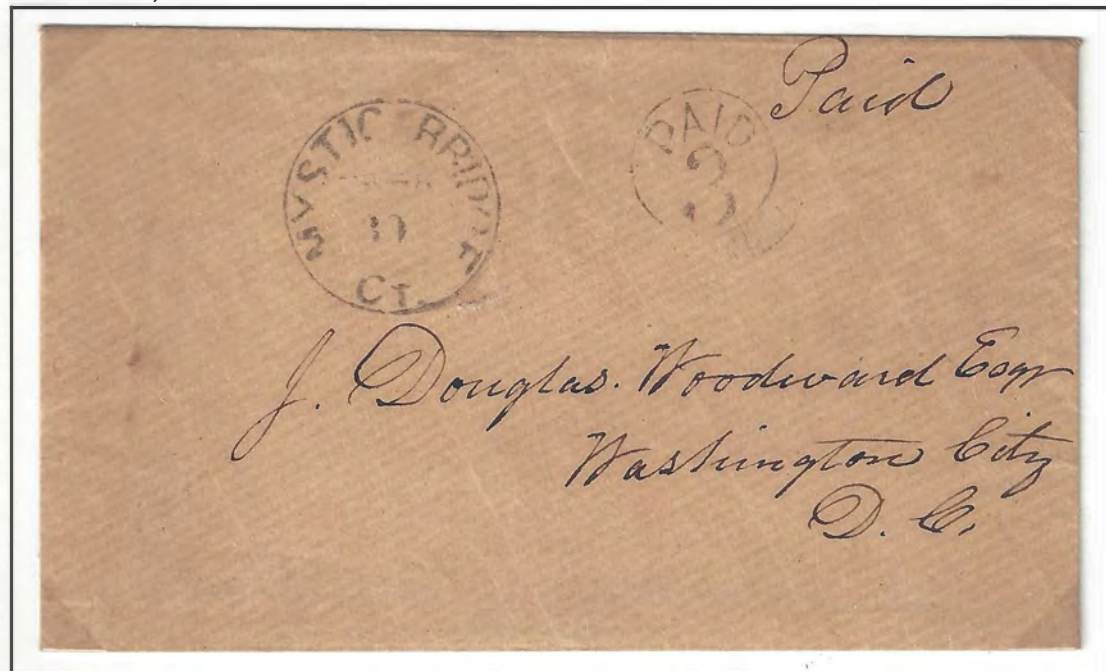 Paid
MYSTIC BRIDGE
11
CT.
PAID
3
J. Douglas. Woodward Esqr
Washington City
D. C.